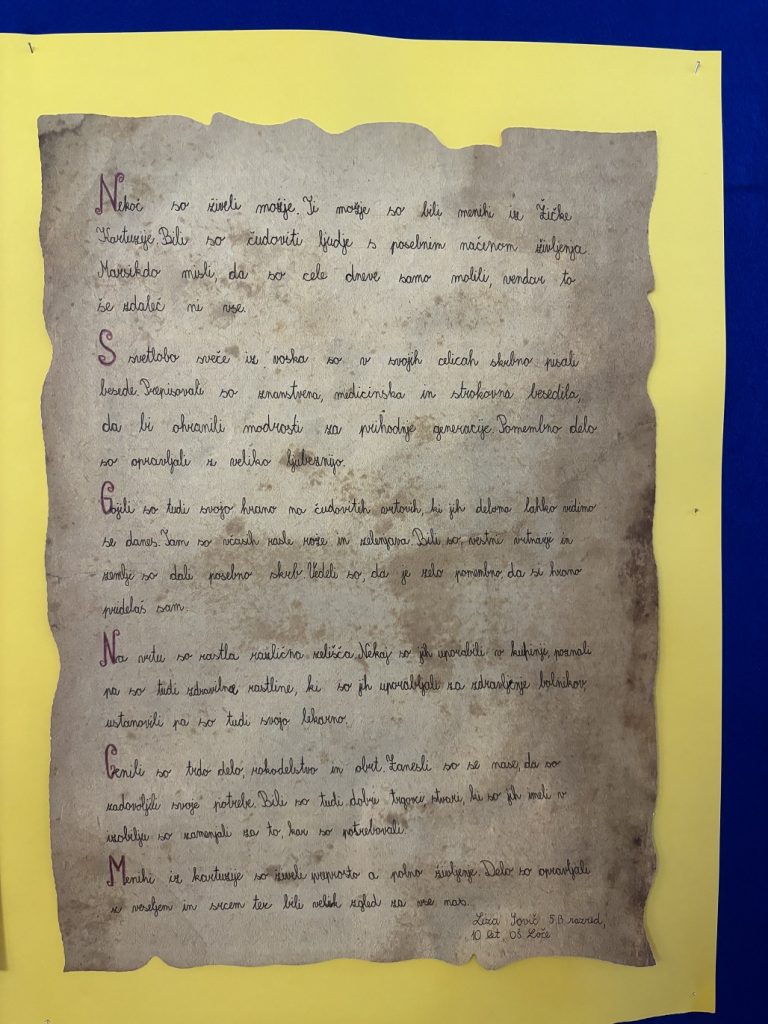 Nekoč so živeli možje. Ti možje so bili menihi iz Žičke
Kartuzije. Bili so čudoviti ljudje s posebnim načinom življenja.
Marsikdo misli, da so cele dneve samo molili, vendar to
še zdaleč ni vse.
S svetlobo sveče iz voska so v svojih celicah skrbno pisali
besede. Prepisovali so znanstvena, medicinska in strokovna besedila,
da bi ohranili modrosti za prihodnje generacije. Pomembno delo
so opravljali z veliko ljubeznijo.
Gojili so tudi svojo hrano na čudovitih vrtovih, ki jih deloma lahko vidimo
še danes. Tam so včasih rasle rože in zelenjava. Bili so vestni vrtnarji in
zemlji so dali posebno skrb. Vedeli so, da je zelo pomembno, da si hrano
pridelaš sam.
Na vrtu so rastla različna zelišča. Nekaj so jih uporabili v kuhinji, poznali
pa so tudi zdravilne rastline, ki so jih uporabljali za zdravljenje bolnikov,
ustanovili pa so tudi svojo lekarno.
Cenili so trdo delo, rokodelstvo in obrt. Zanesli so se nase, da so
zadovoljili svoje potrebe. Bili so tudi dobri trgovci, stvari, ki so jih imeli v
izobilju so zamenjali za to, kar so potrebovali.
Menihi iz kartuzije so živeli preprosto a polno življenje. Delo so opravljali
z veseljem in srcem ter bili velik zgled za vse nas.
Liza 5.B razred,
10 let, OŠ Loče